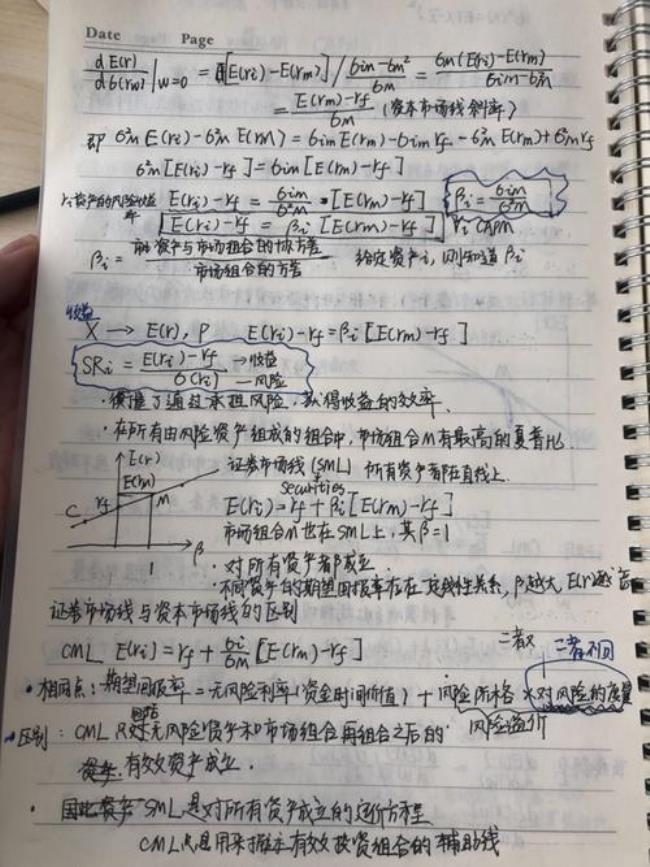 Date Page
dE(r)/dσ(rw)|w=0 = [E(ri)-E(rm)]/(σim-σm²)/σm = σm(E(ri)-E(rm))/(σim-σm²)
= (E(rm)-rf)/σm (资本市场线斜率)
即 σ²m E(ri)-σ²m E(rm) = σim E(rm)-σim rf - σ²m E(rm)+σ²m rf
σ²m[E(ri)-rf] = σim[E(rm)-rf]
ri资产的风险收益率 E(ri)-rf = σim/σ²m·[E(rm)-rf] βi = σim/σ²m
E(ri)-rf = βi[E(rm)-rf] CAPM
βi = 资产与市场组合的协方差/市场组合的方差 给定资产i, 则知道βi
收益
X → E(r), P E(ri)-rf=βi[E(rm)-rf]
SRi = (E(ri)-rf)/σ(ri) →收益 —风险
·衡量了通过承担风险,获得收益的效率.
·在所有由风险资产组成的组合中,市场组合M有最高的夏普比.
E(r) 证券市场线(SML) 所有资产都在直线上.
E(rm) securities
C rf M E(ri)=rf+βi[E(rm)-rf]
市场组合M也在SML上,其β=1
1 β ·对所有资产都成立.
·不同资产的期望回报率存在线性关系,β越大,E(r)越高
证券市场线与资本市场线的区别
CML E(ri)=rf+σi/σm[E(rm)-rf] 二者不同
·相同点:期望回报率=无风险利率(资金时间价值)+风险价格×对风险的度量
风险溢价
·区别:CML只对包括无风险资产和市场组合再组合之后的
有效资产成立.
·因此 SML是对所有资产成立的定价方程
CML只是用来描述有效投资组合的辅助线